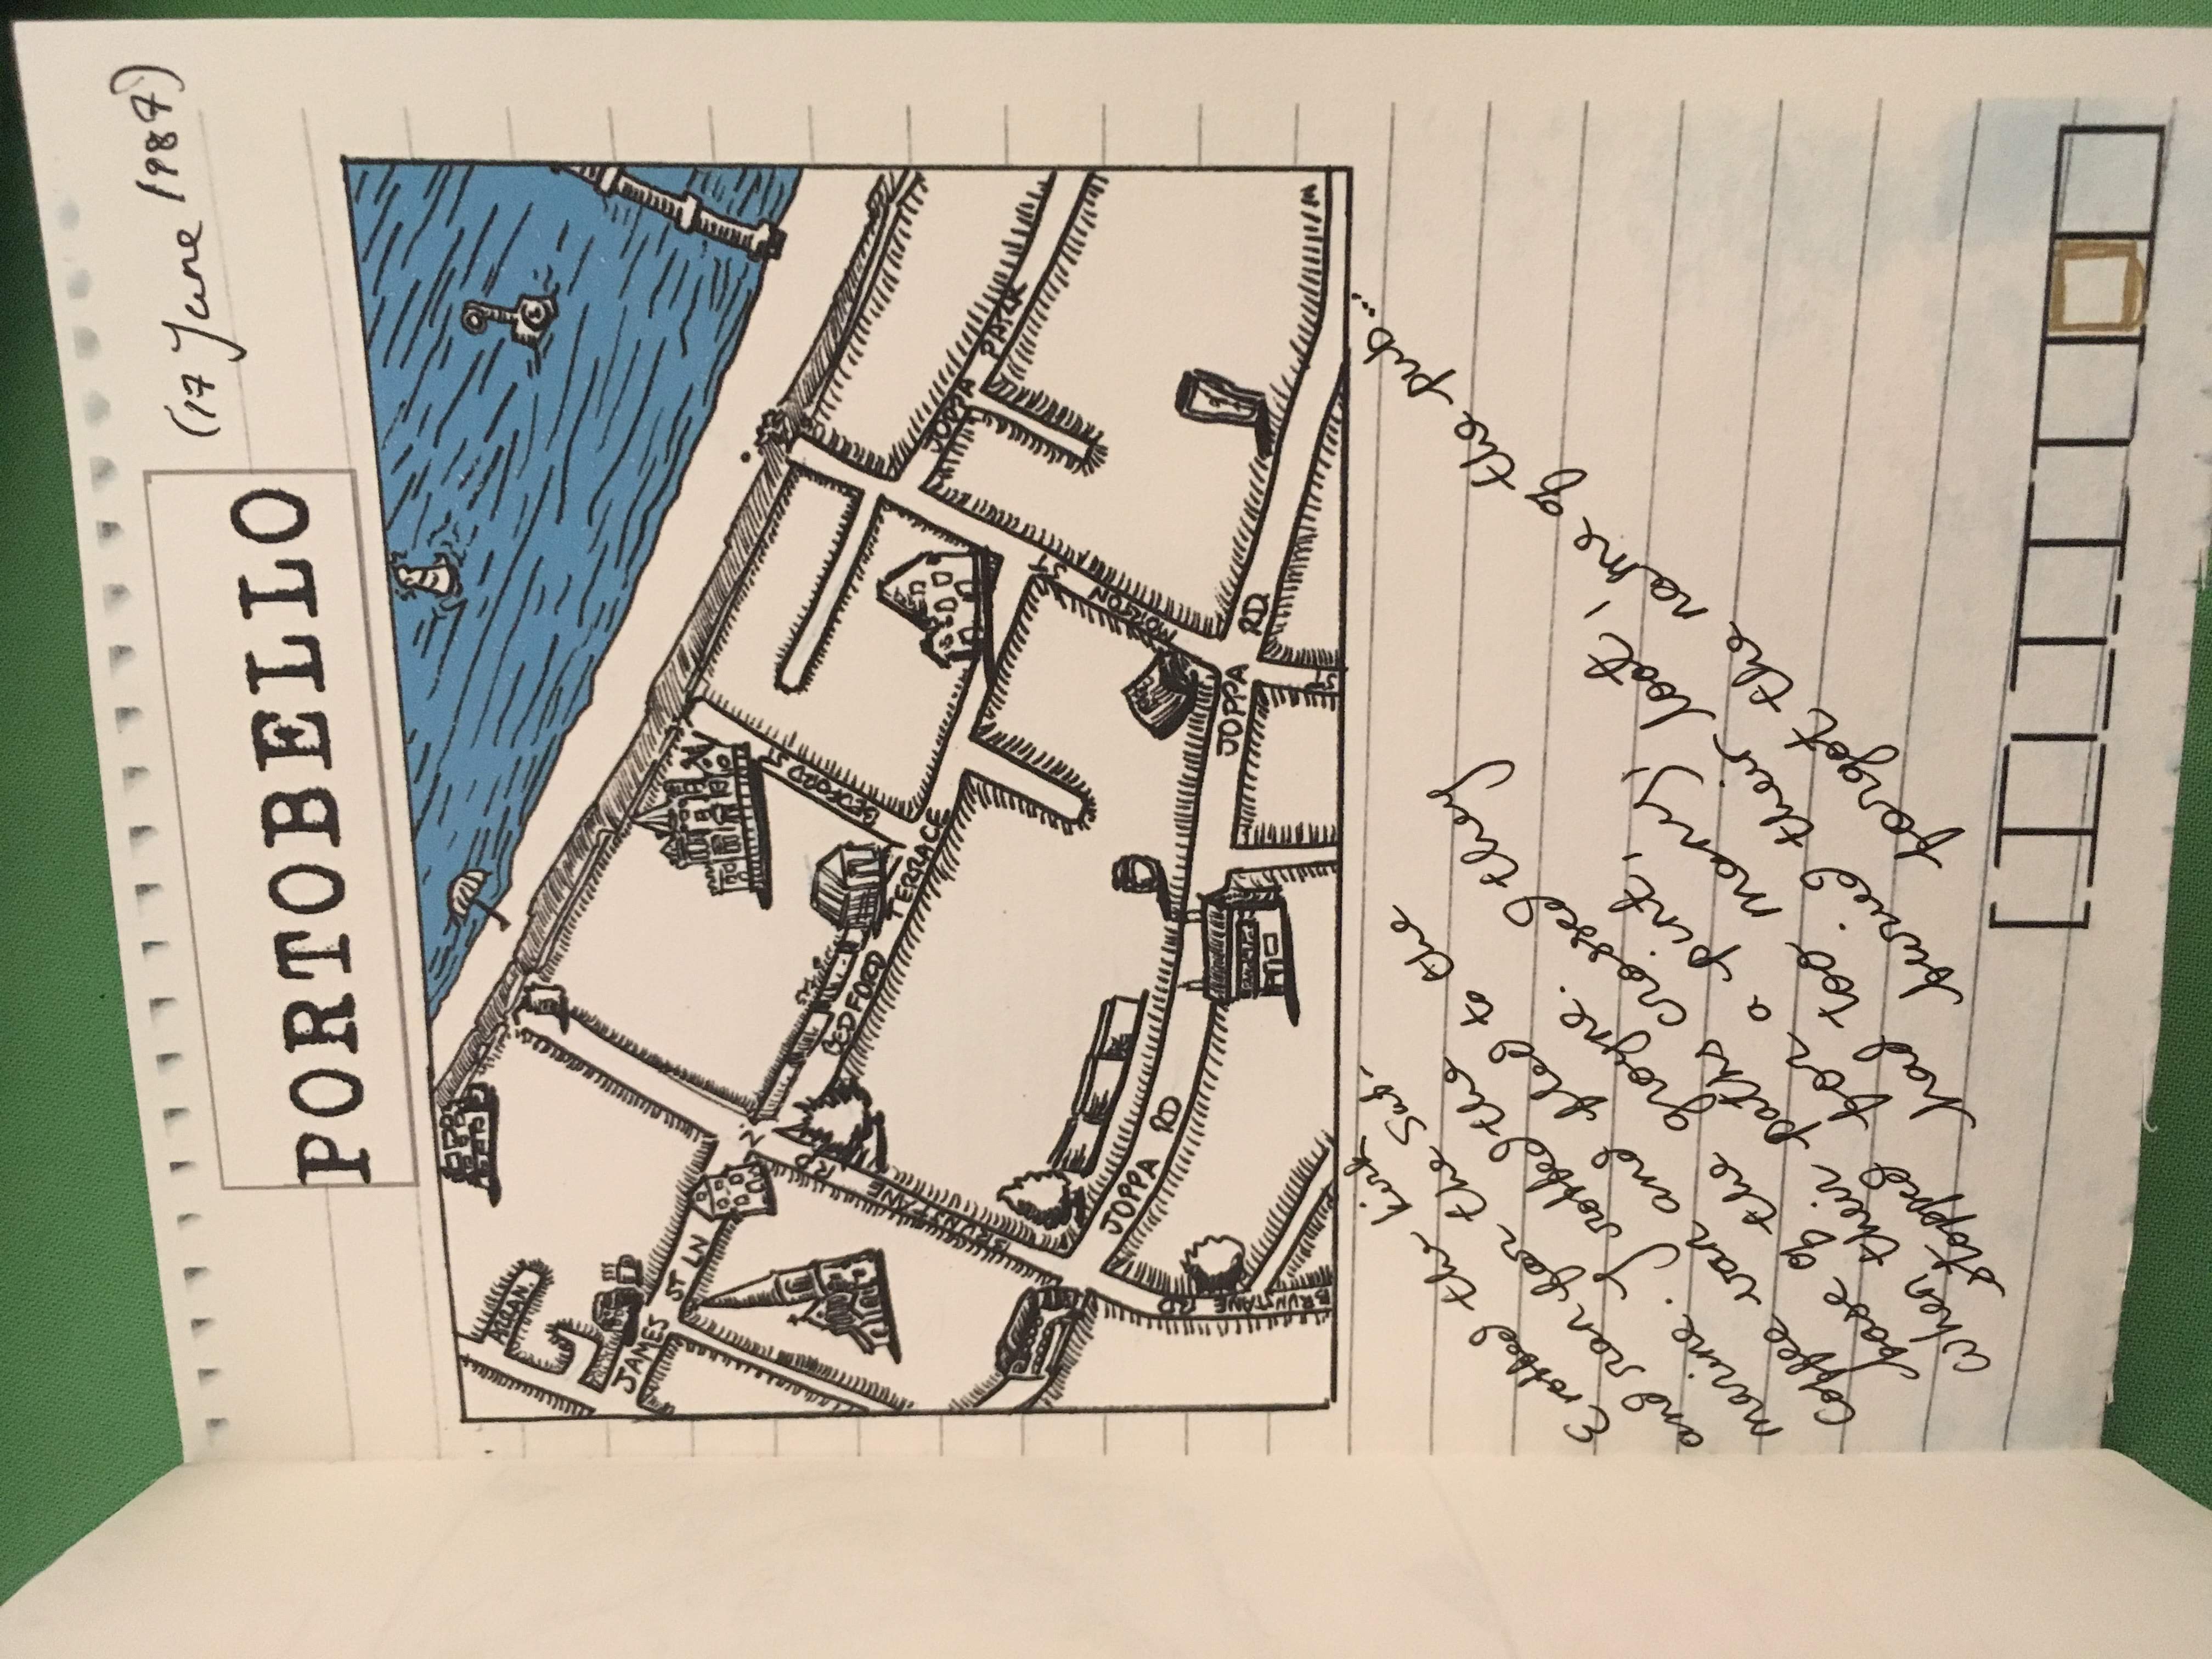 (17 June 1987)
PORTOBELLO
ARRAN
JAMES ST LN
BRUNSTANE RD
BEDFORD TERRACE
BEDFORD ST
JOPPA PARK
MORTON ST
JOPPA RD
JOPPA RD
BRUNSTANE RD
ST
E robbed the kirk
and ran for the Sub-
marine. J robbed the
Coffee van and fled to the
base of the groyne.
When their paths crossed they
stopped for a pint,
had too many,
buried their loot,
forgot the name of the pub...